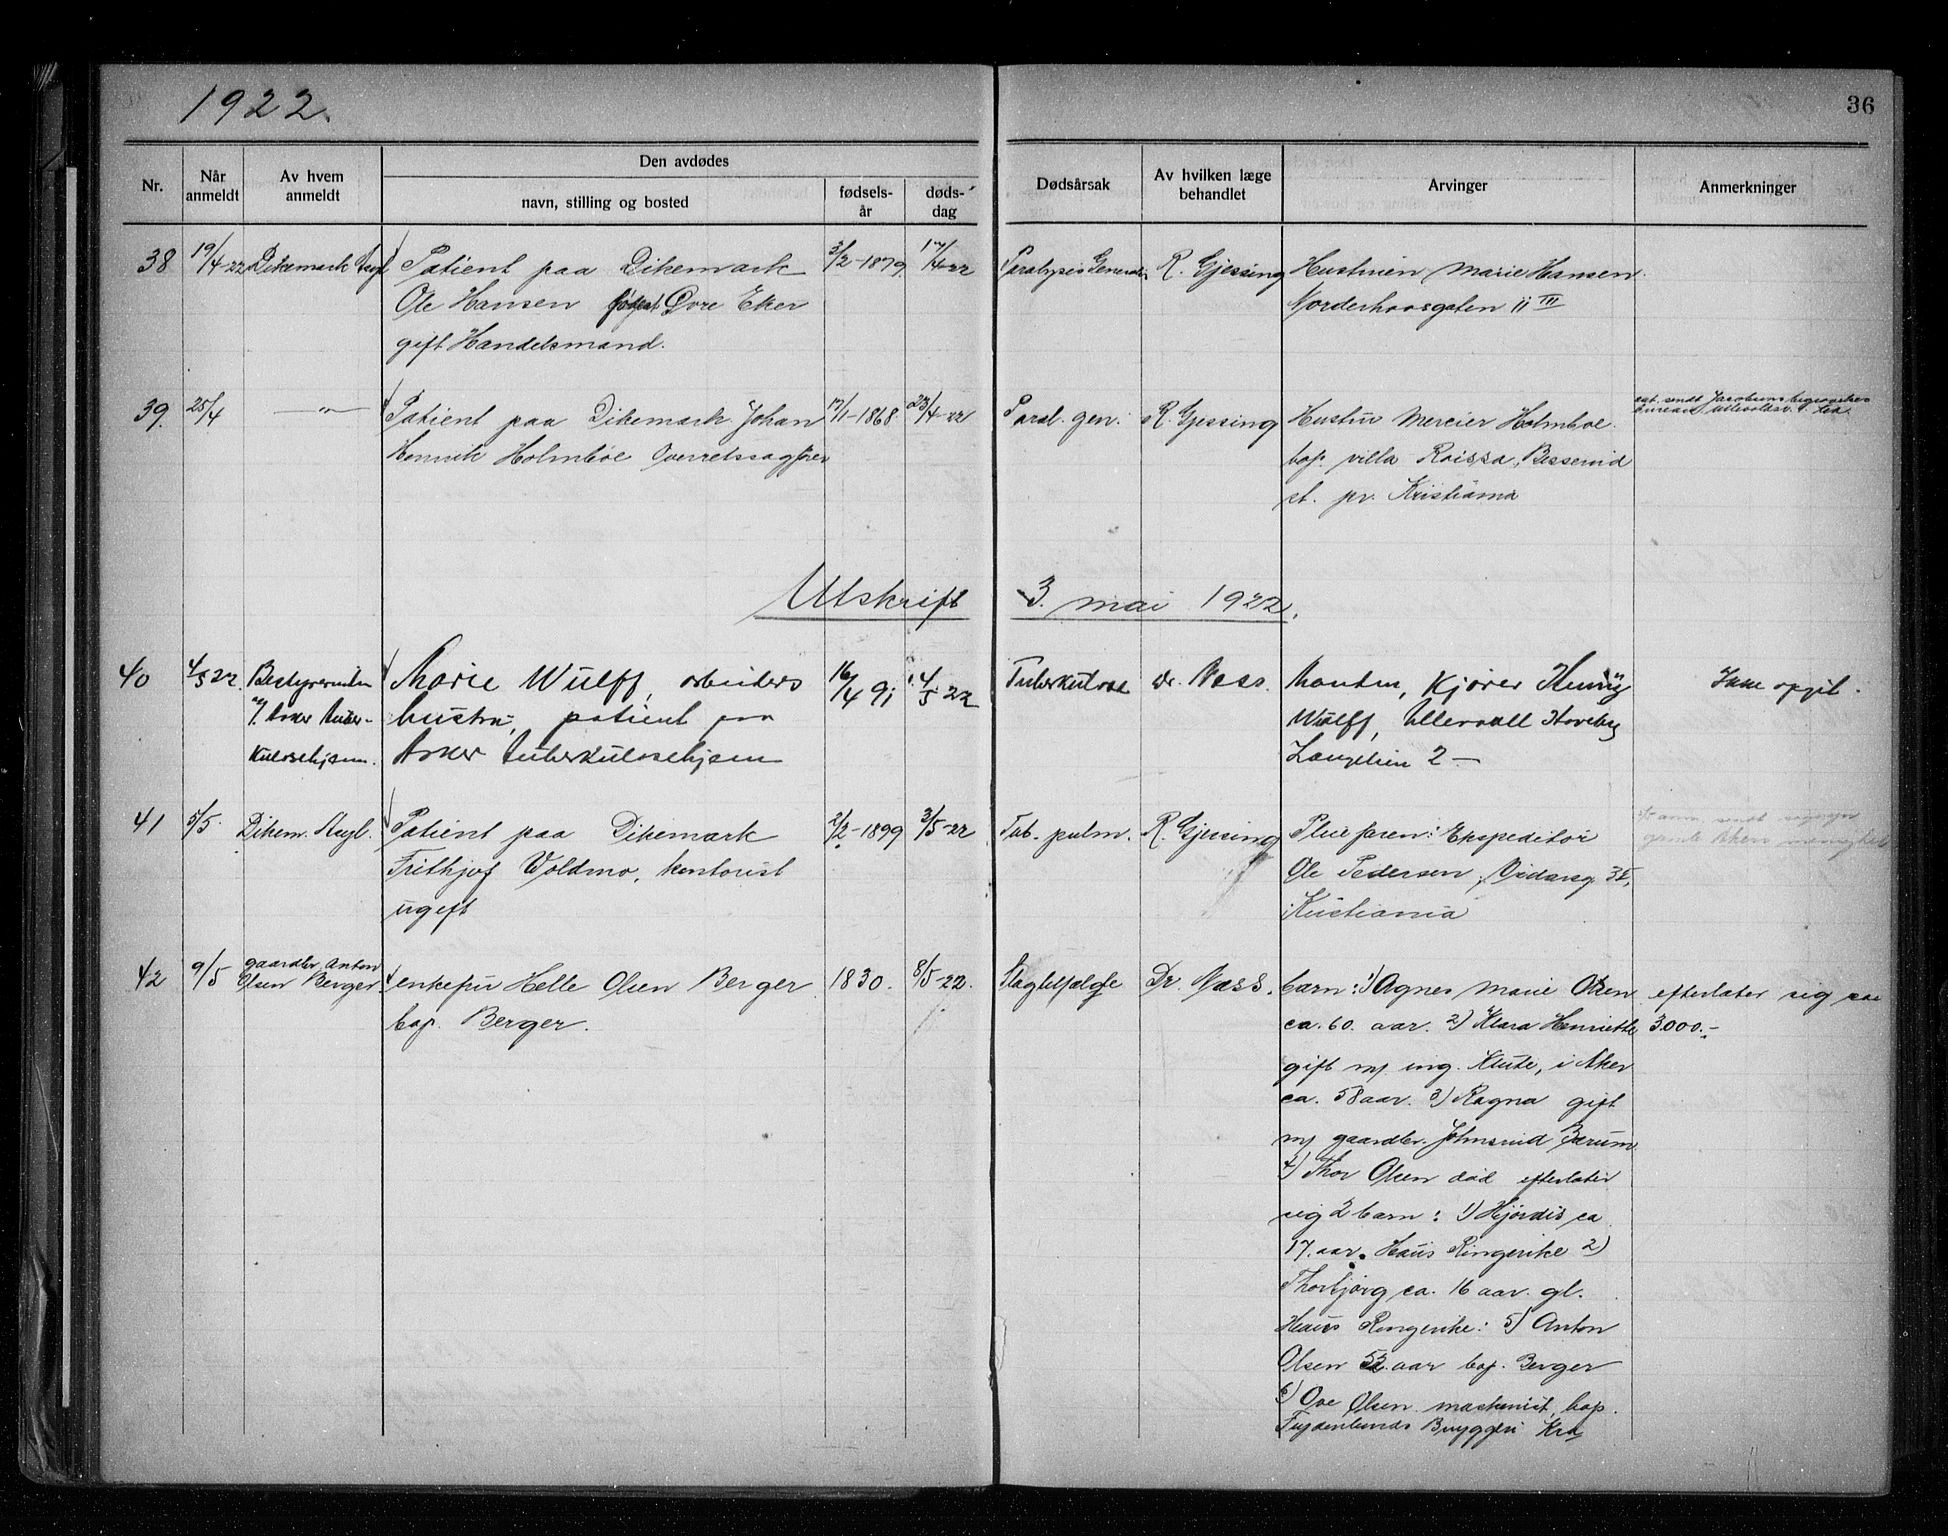 1922.
36
Den avdødes
Nr.
Når anmeldt
Av hvem anmeldt
navn, stilling og bosted
fødsels-år
døds-dag
Dødsårsak
Av hvilken læge behandlet
Arvinger
Anmerkninger
38 19/4-22 Dikemark Asyl
Patient paa Dikemark
Ole Hansen født Øvre Eker
gift Handelsmand.
3/2-1879 17/4-22
Paralysis Generalis R. Gjessing
Hustruen Marie Hansen
Norderhovsgaten 11 III
39. 25/4 —"—
Patient paa Dikemark Johan
Henrik Holmboe Overretssagfører
17/1-1868 23/4-22
Paral. gen. R. Gjessing
Hustru Mercier Holmboe
bop. villa Raissa, Besserud
st. pr. Kristiania
Utskrift 3. mai 1922.
40 4/5 22. Bestyrerinden
v/ Asker tuber-
kulosehjem.
Marie Wulff, arbeiders
hustru, patient paa
Asker tuberkulosehjem
16/4 91 4/5 22
Tuberkulose dr. Næss.
Manden, kjører Henry
Wulff, Ullevaal Haveby
Langelien 2 —
Ikke opgit.
41 5/5. Dikem. Asyl.
Patient paa Dikemark
Frithjof Voldmo, kontorist
ugift
2/2-1899 3/5-22
Tub. pulm. R. Gjessing
Pleiefaren: Ekspeditør
Ole Pedersen, Vidarsg.
Kristiania
42 9/5 gaardbr. Anton
Olsen Berger
enkefru Helle Olsen Berger
bop. Berger.
1830. 8/5-22.
Slagtilfælde Dr. Næss.
barn: 1) Agnes Marie Olsen
ca. 60 aar. 2) Klara Henriette
gift m/ ing. Klute, i Aker
ca. 58 aar. 3) Ragna gift
m/ gaardbr. Johnsrud Bærum
4) Thor Olsen död efterlater
sig 2 barn: 1) Hjördis ca
17. aar. Haus Ringerike 2)
Thorbjörg ca. 16 aar. gl.
Haus Ringerike: 5) Anton
Olsen 52. aar bop. Berger
6) Ove Olsen maskinist, bop.
Frydenlunds Bryggeri Kra
efterlater sig ca
3000.-